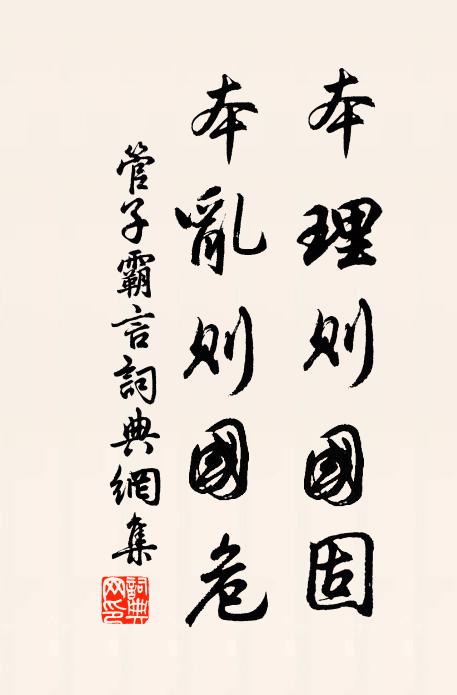 本理則國固
本亂則國危
管子霸言詞典網集
詞典網印